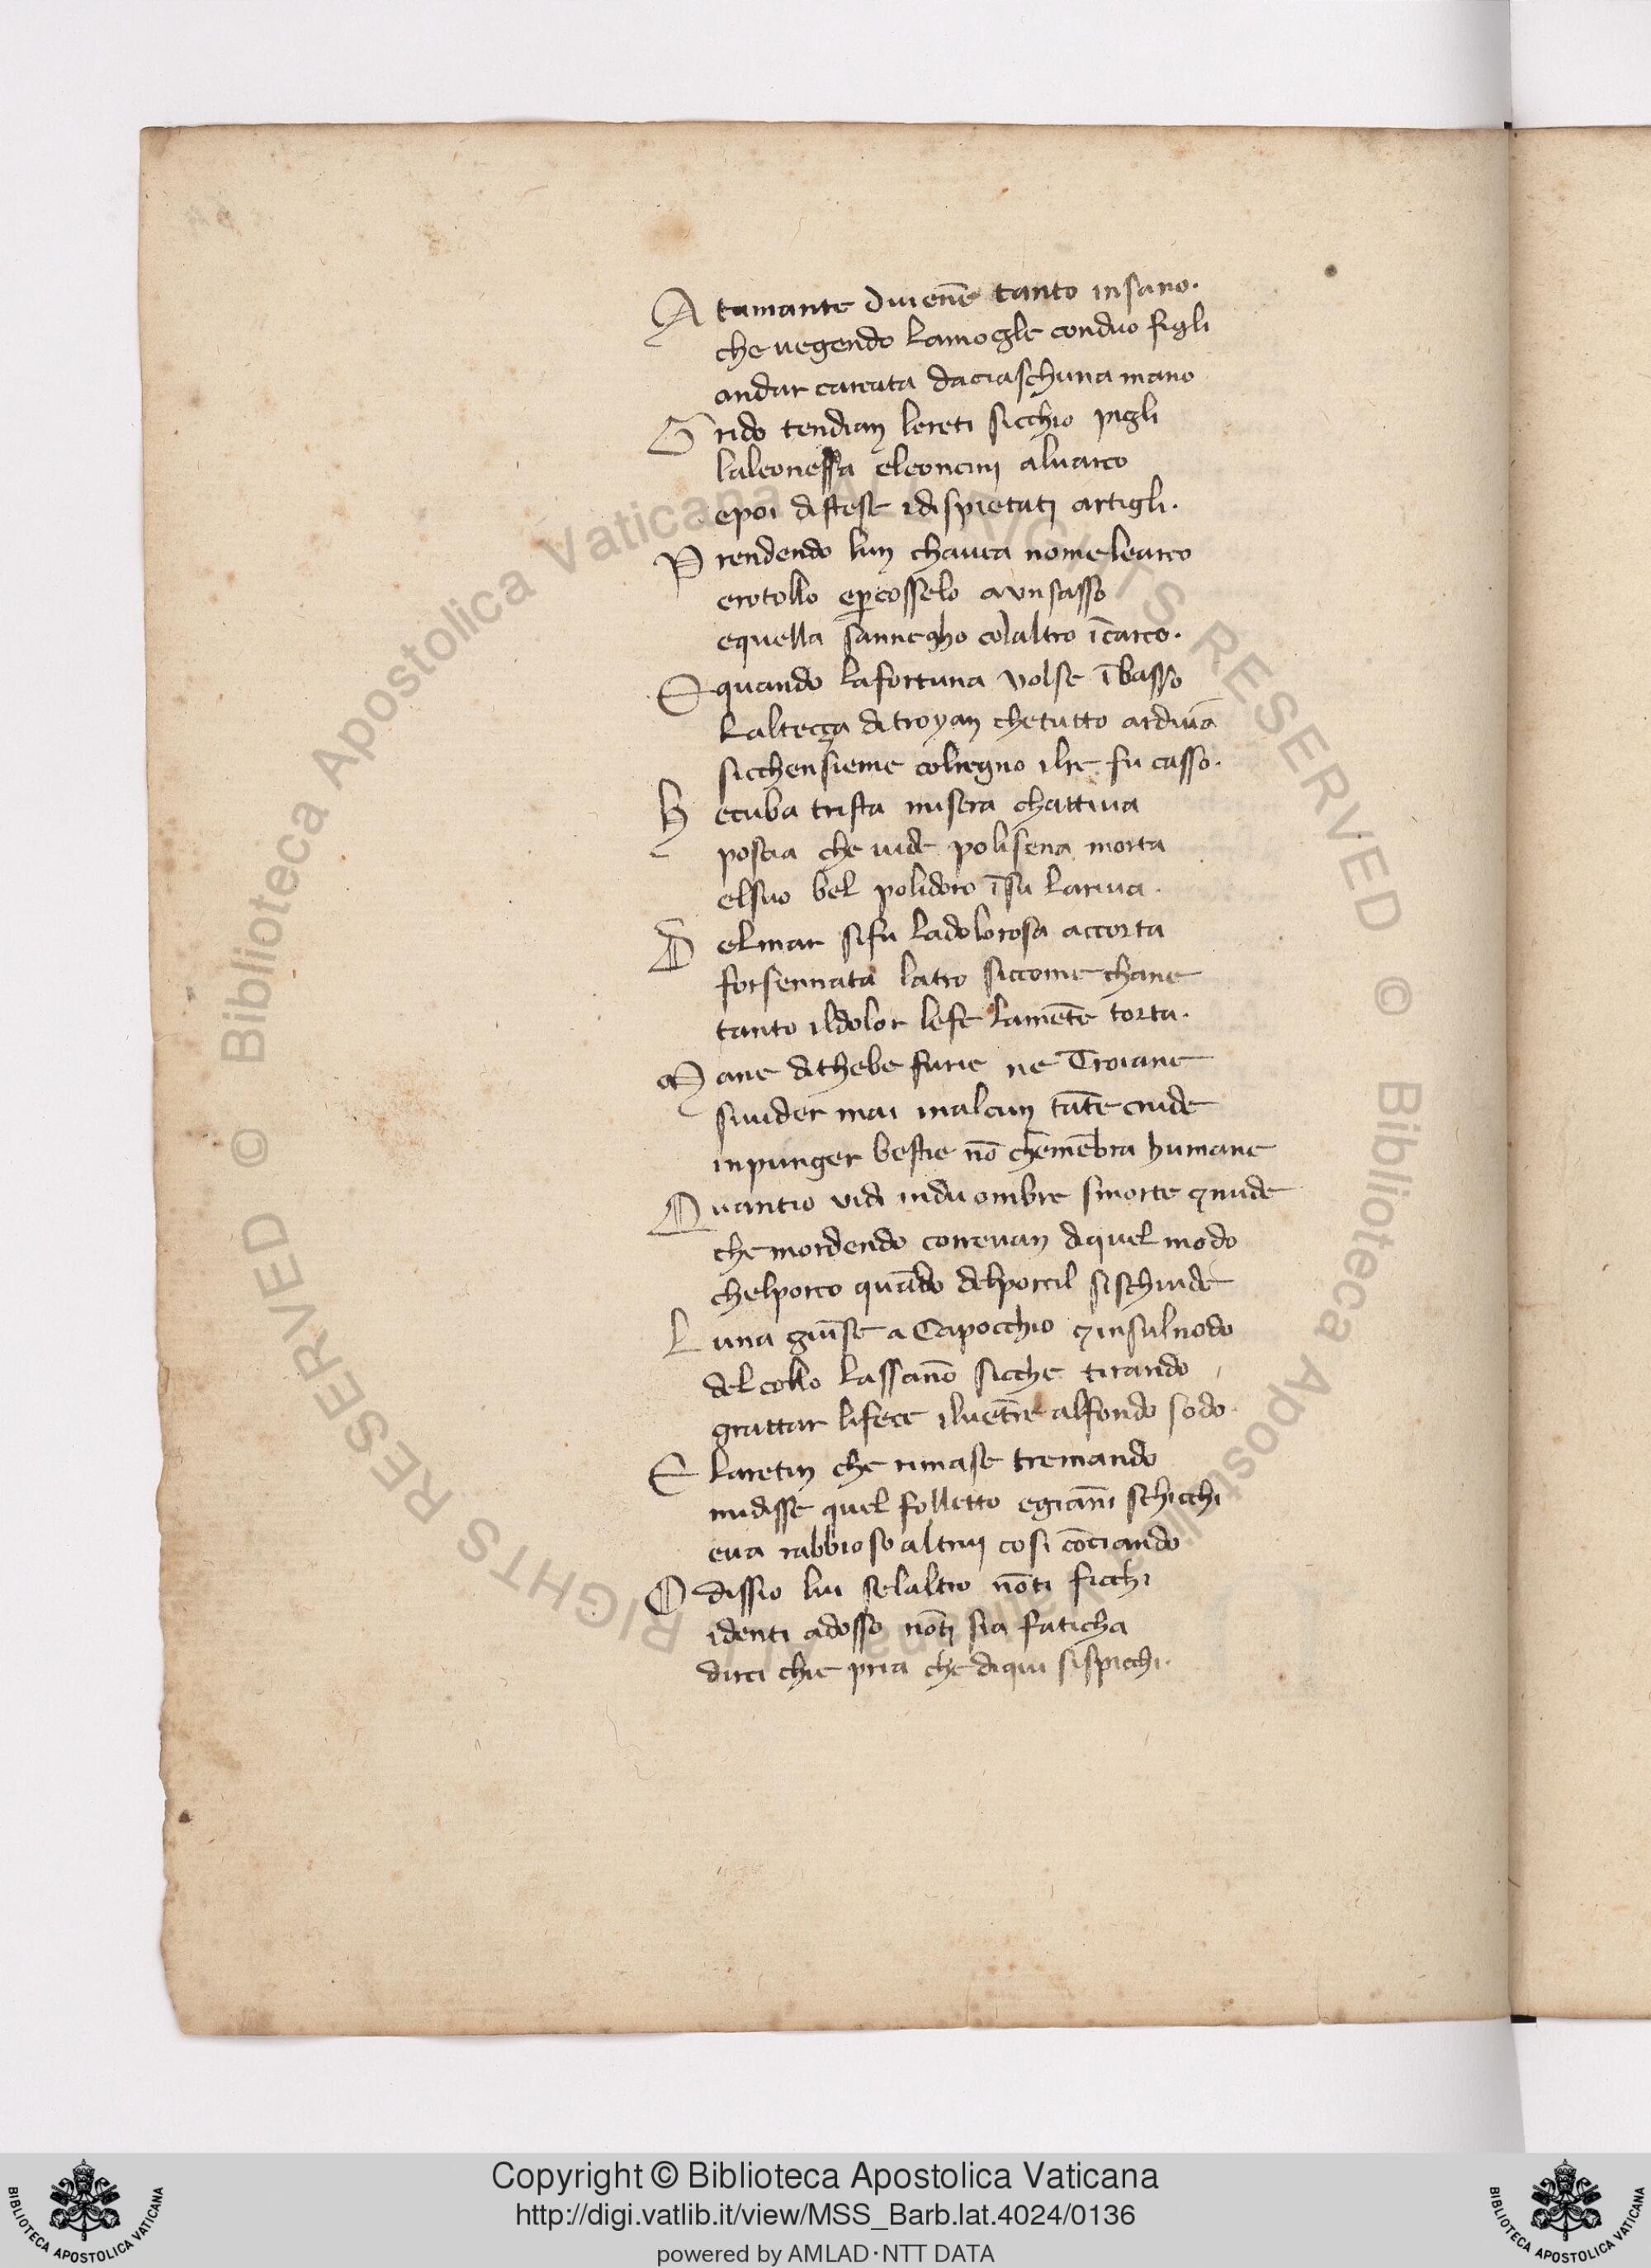 A tamante diuenē tanto insano.
che uegendo lamogle conduo figli
andar carcata daciaschuna mano
G rido tendian lereti sicchio pigli
laleonessa eleoncini aluarco
epoi distese idispietati artigli.
P rendendo lun chauea nome learco
erotollo epcosselo aun sasso
equella sannegho colaltro īcarco.
E quando lafortuna volse ībasso
Laltecça ditroyan chetutto ardiuā
sicchensieme colregno ilre fu casso.
H ecuba trista misera chattiua
poscia che uide polisena morta
elsuo bel polidoro īsu lariua.
D elmar sifu ladolorosa accorta
forsennata latro siccome chane
tanto ildolor lefe lamēte torta.
M ane dithebe furie ne Troiane
siuider mai inalcun tāte crude
inpunger bestie nō chemēbra humane
Q uantio vidi indu ombre smorte ⁊nude
che mordendo correuan diquel modo
chelporco quādo delporcil sischiude
L una giūse a Capocchio ⁊insulnodo
del collo lassannō sicche tirando
grattar lifece iluētre alfondo sodo.
E laretin che rimase tremando
midisse quel folletto egiāni schicchi
eua rabbioso altrui cosi cōciando
O dissio lui selaltro nōti ficchi
identi adosso nōti sia faticha
dirci chie pria che diqui sispicchi.
© Biblioteca Apostolica Vaticana ALL RIGHTS RESERVED © Biblioteca Apostolica Vaticana ALL RIGHTS RESERVED
Copyright © Biblioteca Apostolica Vaticana
http://digi.vatlib.it/view/MSS_Barb.lat.4024/0136
powered by AMLAD·NTT DATA
BIBLIOTECA APOSTOLICA VATICANA
BIBLIOTECA APOSTOLICA VATICANA